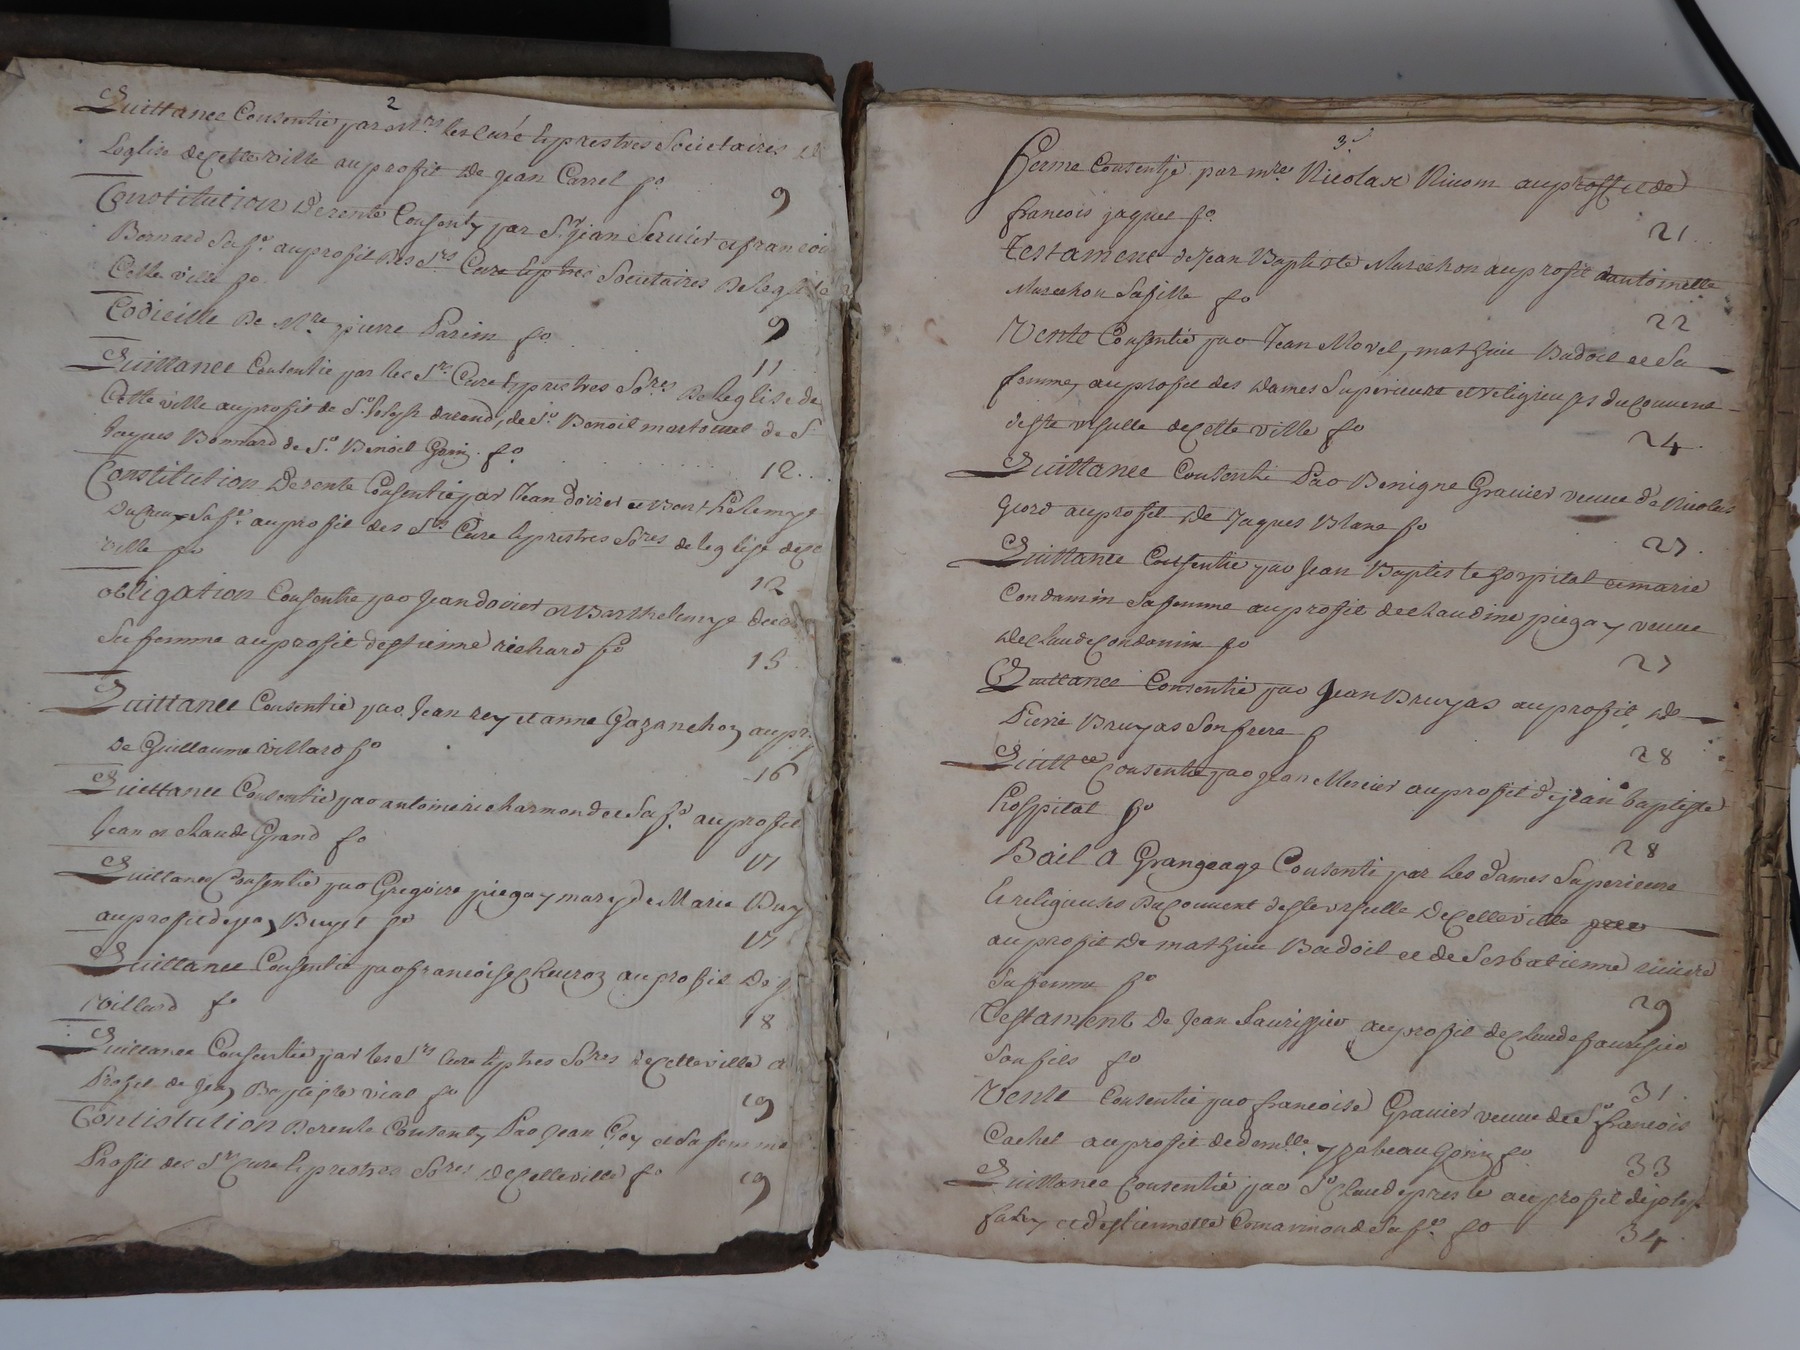 2
Quittance Consentie par Mrs les curé & prestres Societaires de
Leglise de Cette ville au profit de Jean Carrel fo 9
Constitution de rente Consenty par Sr Jean Servier et francoise
Bernard sa fe. au profit des Srs Cure & ptres Societaires de leglise de
Cette ville fo 9
Codicille De Mre pierre Parim fo 11
Quittance Consentie par les Srs Cure & prestres Sores De leglise de
Cette ville au profit de Sr Joseph durend, de Sr Benoit martourel de Sr
Jaques Bonnard de Sr Benoit Gonin fo 12
Constitution De rente Consentie par Jean doirer et Barthelemye
Ducreux sa fe. au profit des Srs Cure & prestres Sores de leglise de Ce
ville fo 12
obligation Consentie par Jean doirer et Barthelemye
Sa femme au profit destienne richard fo 15
Quittance Consentie par Jean rey et anne Gazanchoz au pr
De Guillaume villard fo 16
Quittance Consentie par antoine richarmond et sa fe au profit
Jean et claude Grand fo 17
Quittance Consentie par Gregoire piegay mary de Marie Buy
au profit de Buyet fo 17
Quittance Consentie par francoise Cheuroz au profit De
Villard fo 18
Quittance Consentie par les Srs Cure & ptres Sores de Cette ville a
Profit de Jean Baptiste vial fo 19
Contistution De rente Consenty Par Jean Gey et sa femme
Profit des Srs Cure & prestres Sores De Cette ville fo 19
3.
ferme Consentye par mre Nicolas Rivom au proffit de
francois jaquet fo. 21
Testament de Jean Baptiste Marechon au profit dantoinette
Marechon Sa fille fo 22
Vente Consentie par Jean Morel, mathieu Badoil et Sa
femme, au profit des Dames Superieure et religieuses du Couvent
de Ste ursulle de Cette ville fo 24.
Quittance Consentie Par Benigne Gravier veuve de Nicolas
giord au profit de Jaques Blanc fo 27.
Quittance Consentie par Jean Baptiste hospital et marie
Condamin Sa femme au profit de claudine piegay veuve
de Claude Condamin fo 27
Quittance Consentie par Jean Bruyas au profit de
Pierre Bruyas Son frere f 28
Quittce Consentie par Jean Mercier au profit de jean baptiste
hospital fo 28
Bail a Grangeage Consenti par les dames Superieure
& religieuses Du Couvent de Ste ursulle De Cette ville
au profit de mathieu Badoil et de Sesbatienne riviere
Sa femme fo 29
Testament De Jean Faurissier au profit de Claude faurissier
Son fils fo 31.
Vente Consentie par francoise Gravier veuve de Sr francois
Cachet au profit de demlle. yzabeau Gonin fo 33
Quittance Consentie par Sr Claude presle au profit de joseph
faley et destiennette Comarmond Sa fe. fo 34.